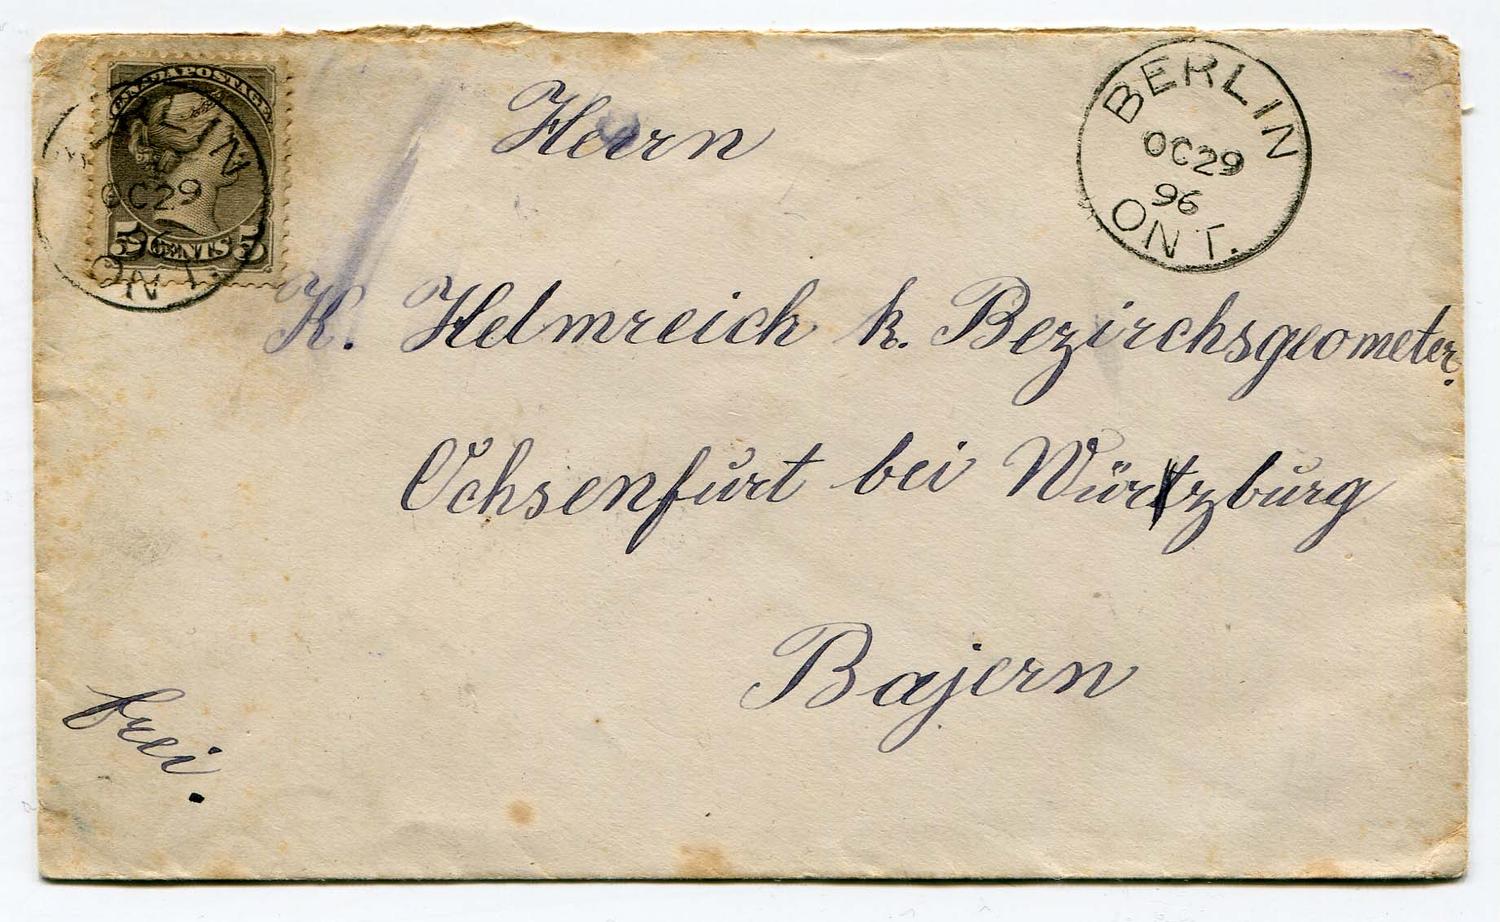 CANADA POSTAGE
BERLIN
OC 29
96
ONT.
5 CENTS 5
BERLIN
OC 29
96
ONT.
Herrn
K. Helmreich k. Bezirchsgeometer.
Ochsenfurt bei Würzburg
Bajern
frei.